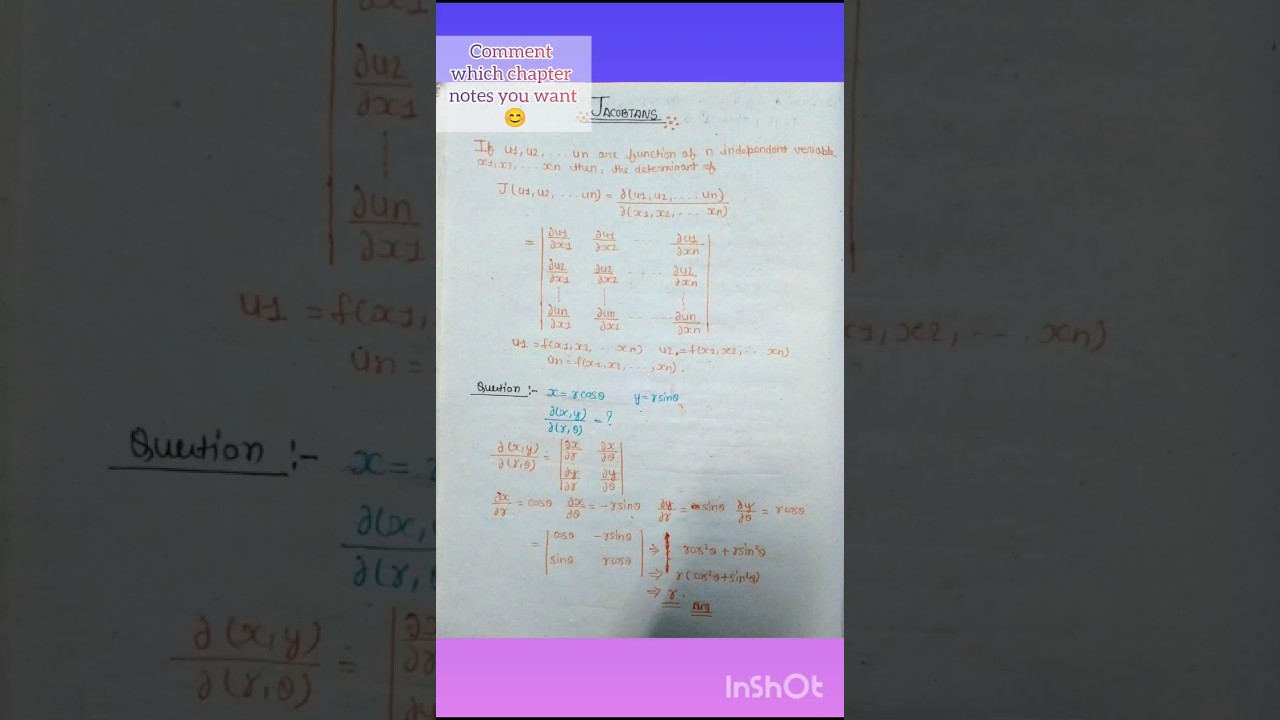 Comment
which chapter
notes you want
😊
JACOBIANS
If u1, u2, ... un are function of n independent variable
x1, x2, ... xn then, the determinant of
J(u1, u2, ... un) = ∂(u1, u2, .... un)
∂(x1, x2, ... xn)
= | ∂u1/∂x1 ∂u1/∂x2 .... ∂u1/∂xn |
| ∂u2/∂x1 ∂u2/∂x2 .... ∂u2/∂xn |
| ∂un/∂x1 ∂un/∂x2 .... ∂un/∂xn |
u1 = f(x1, x2, ... xn) u2 = f(x1, x2, ... xn)
un = f(x1, x2, ..., xn).
Question :- x = rcosθ y = rsinθ
∂(x,y)/∂(r,θ) = ?
∂(x,y)/∂(r,θ) = | ∂x/∂r ∂x/∂θ |
| ∂y/∂r ∂y/∂θ |
∂x/∂r = cosθ ∂x/∂θ = -rsinθ ∂y/∂r = sinθ ∂y/∂θ = rcosθ
= | cosθ -rsinθ | ⇒ rcos²θ + rsin²θ
| sinθ rcosθ |
⇒ r(cos²θ + sin²θ)
⇒ r. Ans
InShOt